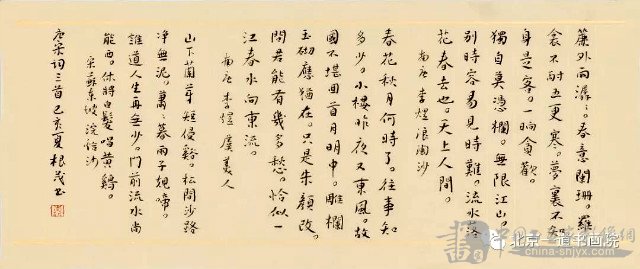 簾外雨潺〻。春意闌珊。羅
衾不耐五更寒。夢裏不知
身是客。一晌貪歡。
獨自莫憑欄。無限江山。
別時容易見時難。流水落
花春去也。天上人間。
南唐李煜浪淘沙
春花秋月何時了。往事知
多少。小樓昨夜又東風。故
國不堪回首月明中。雕欄
玉砌應猶在。只是朱顏改。
問君能有幾多愁。恰似一
江春水向東流。
南唐李煜虞美人
山下蘭芽短侵谿。松間沙路
淨無泥。蕭〻暮雨子規啼。
誰道人生再無少。門前流水尚
能西。休將白髮唱黃鷄。
宋蘇東坡浣谿沙
唐宋词三首己亥夏根茂书
北京一道书画院
china-snjyx.com